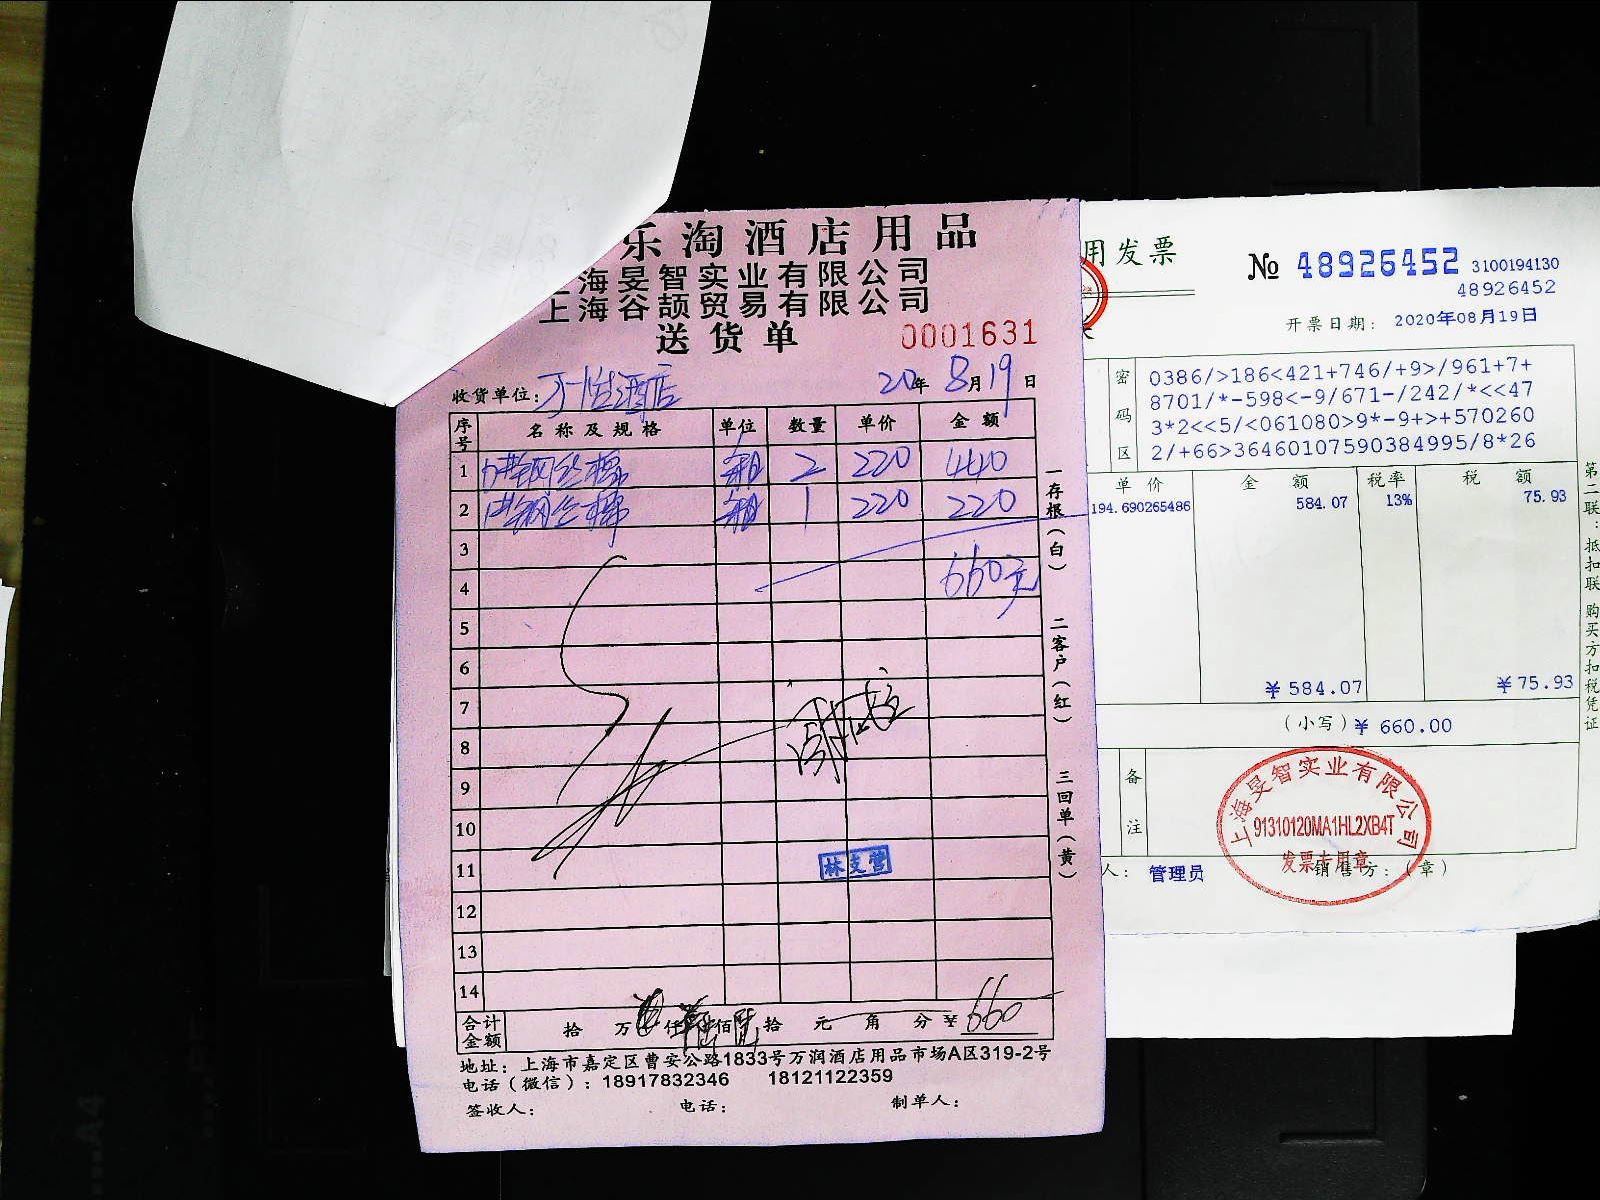 乐淘酒店用品
上海旻智实业有限公司
上海谷颉贸易有限公司
送货单
0001631
收货单位:
20年 8月19日
序号 名称及规格 单位 数量 单价 金额
1 钢丝棉 箱 2 220 440
2 钢丝棉 箱 1 220 220
3
4 660元
5
6
7
8
9
10
11 林支营
12
13
14
合计金额 拾 万 仟 佰 拾 元 角 分 ¥660
地址: 上海市嘉定区曹安公路1833号万润酒店用品市场A区319-2号
电话(微信): 18917832346 18121122359
签收人: 电话: 制单人:
一存根(白) 二客户(红) 三回单(黄)
用发票
№ 48926452 3100194130
48926452
开票日期: 2020年08月19日
密码区
0386/>186<421+746/+9>/961+7+
8701/*-598<-9/671-/242/*<<47
3*2<<5/<061080>9*-9+>+570260
2/+66>36460107590384995/8*26
单价 金额 税率 税额
194.690265486 584.07 13% 75.93
¥584.07 ¥75.93
(小写)¥660.00
备注
上海旻智实业有限公司
91310120MA1HL2XB4T
发票专用章
人: 管理员 销售方:(章)
第二联:抵扣联 购买方扣税凭证
A4